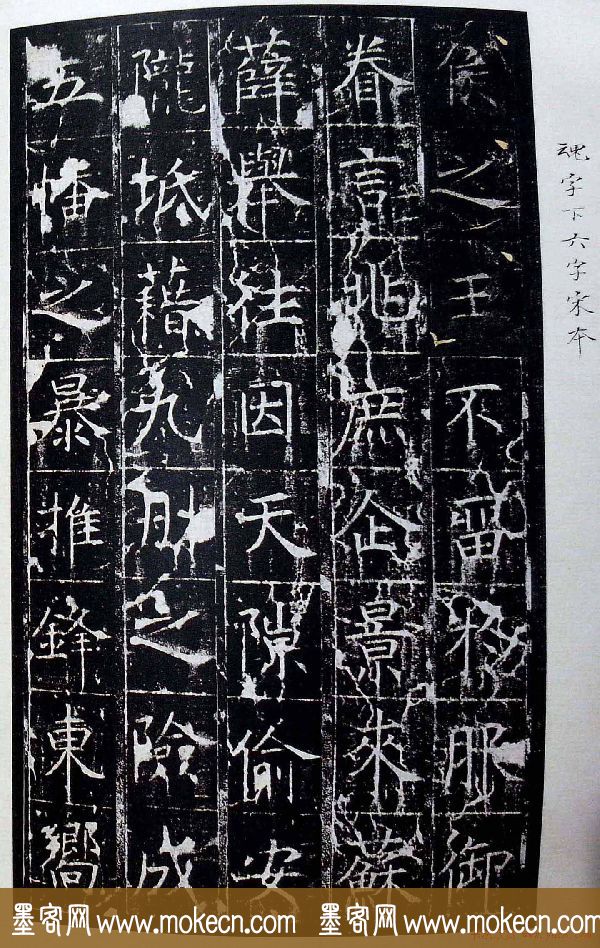 魂字下六字宋本
侯之王不留物服御
眷言兆庶企景來蘇
薛舉往因天隙偷安
隴坻藉九之險成
五幡之暴推鋒東嚮
墨客网 www.mokecn.com 墨客网 www.mokecn.com